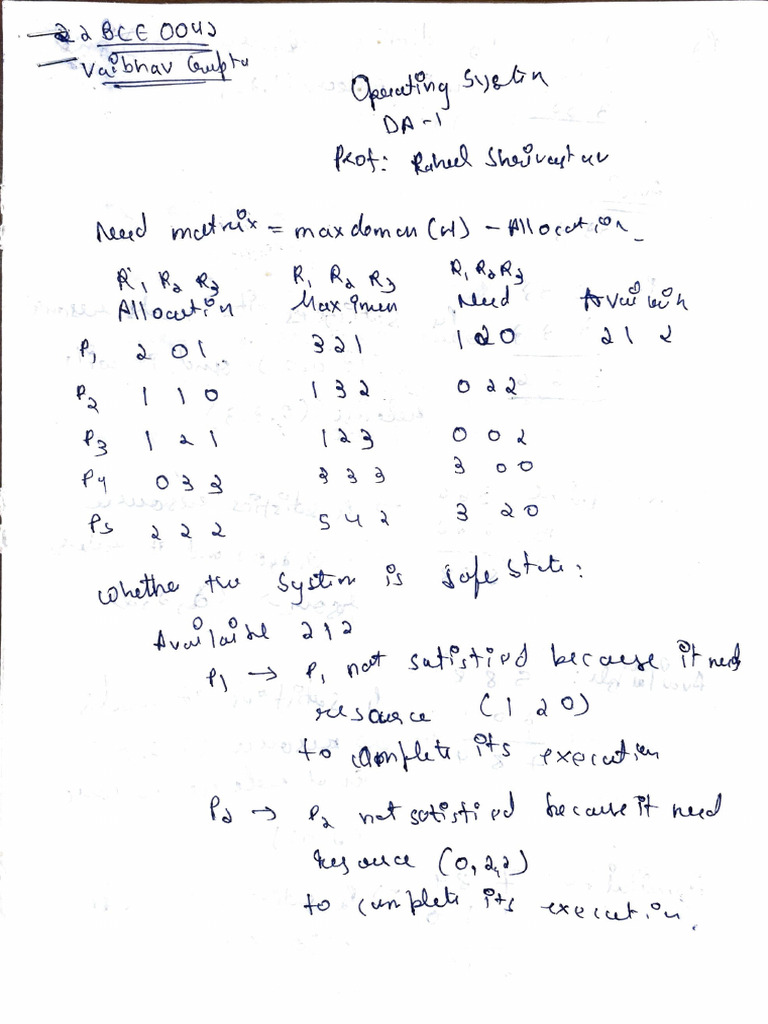 22 BCE 0042
Vaibhav Gupta
Operating System
DA-1
Prof: Raheel Shrivastav
Need matrix = max deman (H) - Allocation
R1 R2 R3 R1 R2 R3 R1 R2 R3
Allocation Maximum Need Available
P1 2 0 1 3 2 1 1 2 0 2 1 2
P2 1 1 0 1 3 2 0 2 2
P3 1 2 1 1 2 3 0 0 2
P4 0 3 3 3 3 3 3 0 0
P5 2 2 2 5 4 2 3 2 0
Whethe the System is safe state:
Available 2 1 2
P1 → P1 not satisfied because it needs
resource (1 2 0)
to complete its execution
P2 → P2 not satisfied because it need
resource (0,2,2)
to complete its execution.